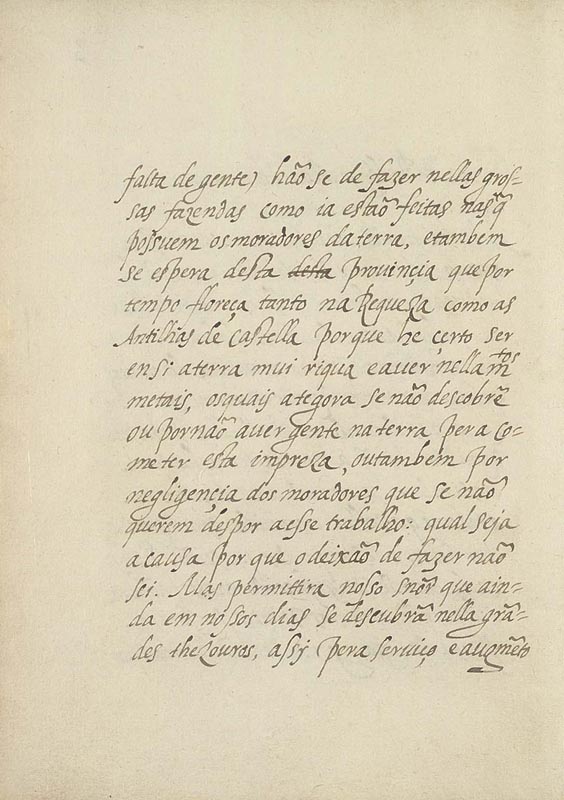 falta de gente) hão se de fazer nellas gros=
sas fazendas como ia estão feitas nas q̃
possuem os moradores da terra, e tambem
se espera desta desta provinçia que por
tempo floreça tanto na Requeza como as
Antilhas de castella porque he çerto ser
en si a terra mui riqua e aver nella m̃tos
metais, os quais ategora se não descobrẽ
ou por não aver gente na terra pera co=
meter esta impreza, ou tambem por
negligençia dos moradores que se não
querem despor a esse trabalho: qual seja
a causa por que o deixão de fazer não
sei. Mas permittira nosso snõr que ain=
da em nossos dias se descubrã nella grã=
des thezouros, assy pera serviço e augmẽto